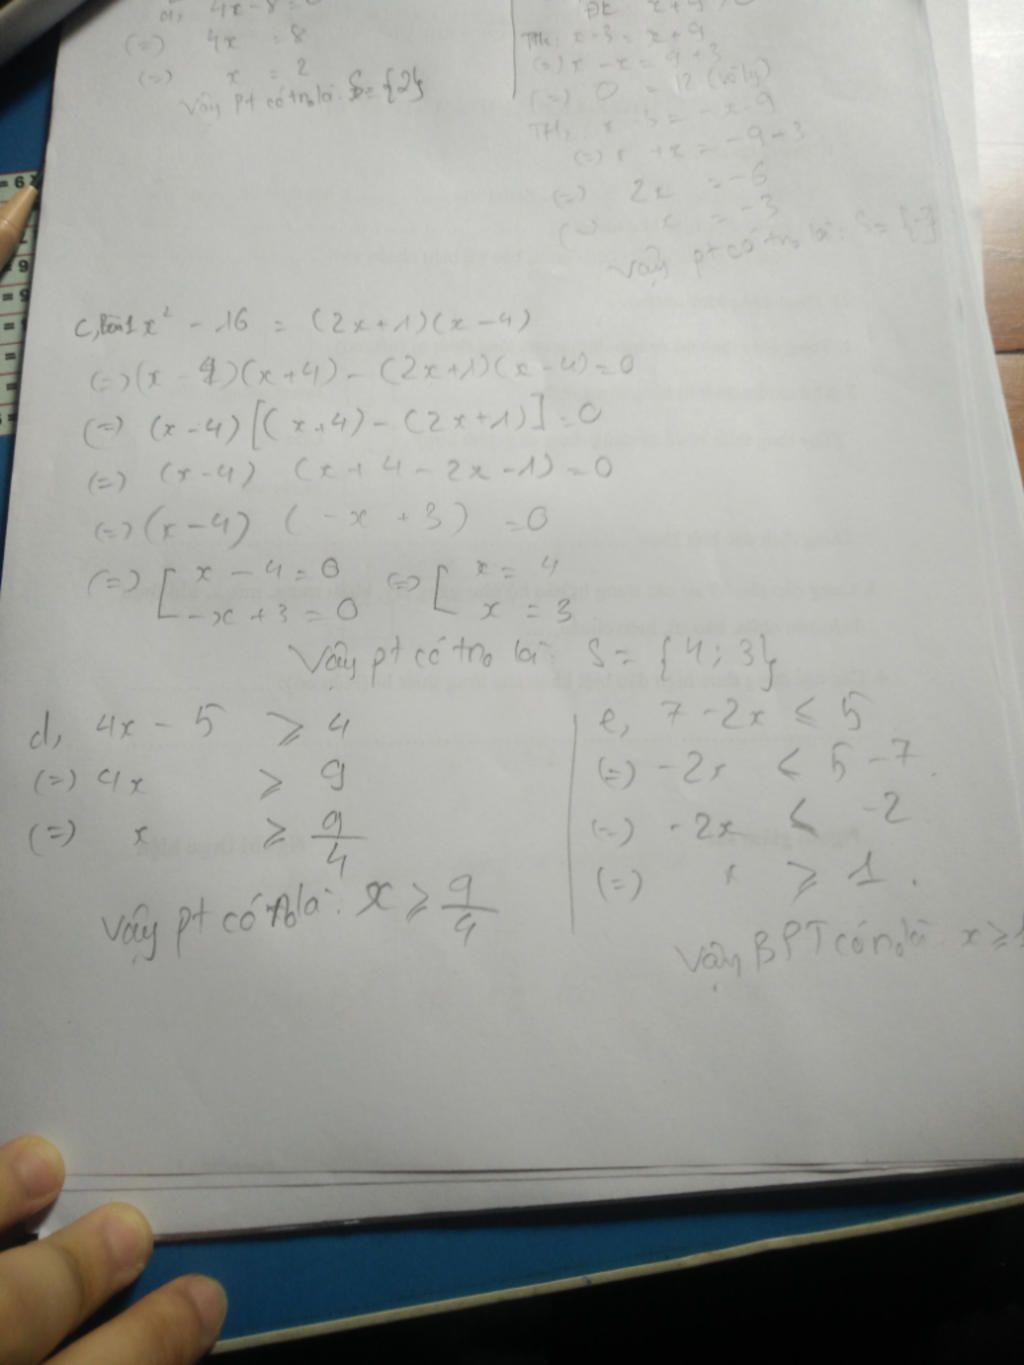 a, 4x - 8 = 0
(=) 4x = 8
(=) x = 2
Vậy pt có tn₀ là: S = {2}
ĐK x + 9
TH₁: x - 3 = x + 9
(=) x - x = 9 + 3
(=) 0 = 12 (vô lý)
TH₂ x - 3 = - x - 9
(=) x + x = -9 + 3
(=) 2x = -6
(=) x = -3
Vậy pt có tn₀ là: S =
c, x² - 16 = (2x+1)(x-4)
(=) (x - 4)(x+4) - (2x+1)(x-4) = 0
(=) (x-4) [(x+4) - (2x+1)] = 0
(=) (x-4) (x + 4 - 2x - 1) = 0
(=) (x-4) (-x + 3) = 0
(=) [ x - 4 = 0 (=) [ x = 4
-x + 3 = 0 x = 3
Vậy pt có tn₀ là: S = {4; 3}
d, 4x - 5 ⩾ 4
(=) 4x ⩾ 9
(=) x ⩾ 9/4
Vậy pt có n₀ là: x ⩾ 9/4
e, 7 - 2x ⩽ 5
(=) -2x ⩽ 5 - 7
(=) -2x ⩽ -2
(=) x ⩾ 1.
Vậy BPT có n₀ là x ⩾ 1